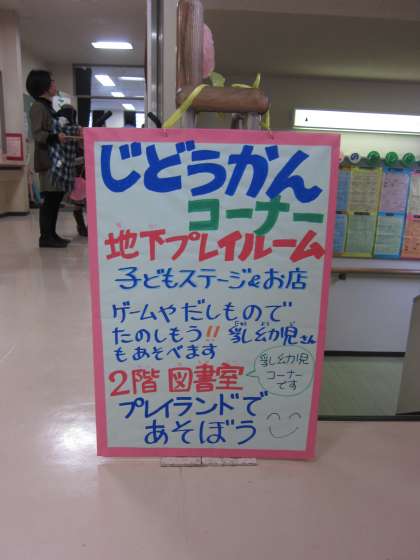 じどうかん
コーナー
地下プレイルーム
子どもステージ&お店
ゲームやだしもので
たのしもう!! 乳幼児さん
もあそべます
乳幼児
コーナー
です
2階 図書室
プレイランドで
あそぼう